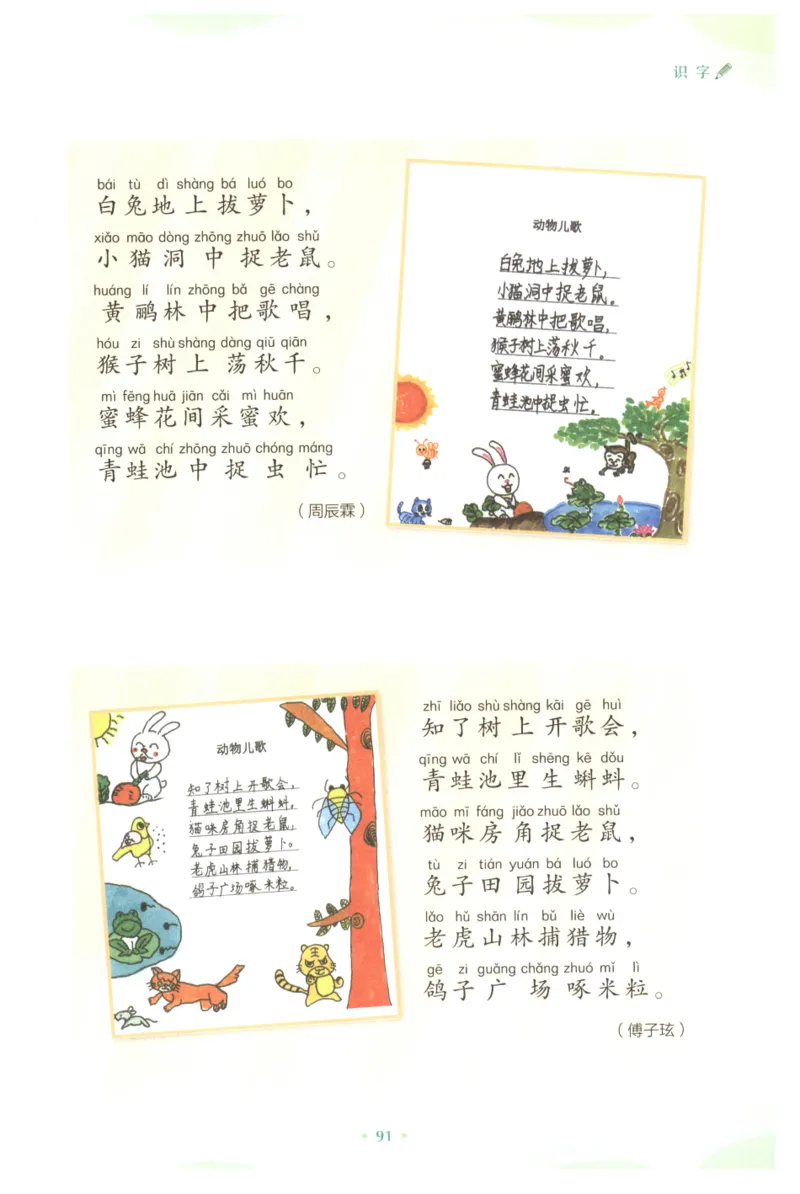 识字
bái tù dì shàng bá luó bo
白兔地上拔萝卜，
xiǎo māo dòng zhōng zhuō lǎo shǔ
小猫洞中捉老鼠。
huáng lí lín zhōng bǎ gē chàng
黄鹂林中把歌唱，
hóu zi shù shàng dàng qiū qiān
猴子树上荡秋千。
mì fēng huā jiān cǎi mì huān
蜜蜂花间采蜜欢，
qīng wā chí zhōng zhuō chóng máng
青蛙池中捉虫忙。
（周辰霖）
动物儿歌
白兔地上拔萝卜，
小猫洞中捉老鼠。
黄鹂林中把歌唱，
猴子树上荡秋千。
蜜蜂花间采蜜欢，
青蛙池中捉虫忙。
动物儿歌
知了树上开歌会，
青蛙池里生蝌蚪，
猫咪房角捉老鼠，
兔子田园拔萝卜。
老虎山林捕猎物，
鸽子广场啄米粒。
zhī liǎo shù shàng kāi gē huì
知了树上开歌会，
qīng wā chí lǐ shēng kē dǒu
青蛙池里生蝌蚪。
māo mī fáng jiǎo zhuō lǎo shǔ
猫咪房角捉老鼠，
tù zi tián yuán bá luó bo
兔子田园拔萝卜。
lǎo hǔ shān lín bǔ liè wù
老虎山林捕猎物，
gē zi guǎng chǎng zhuó mǐ lì
鸽子广场啄米粒。
（傅子玹）
91